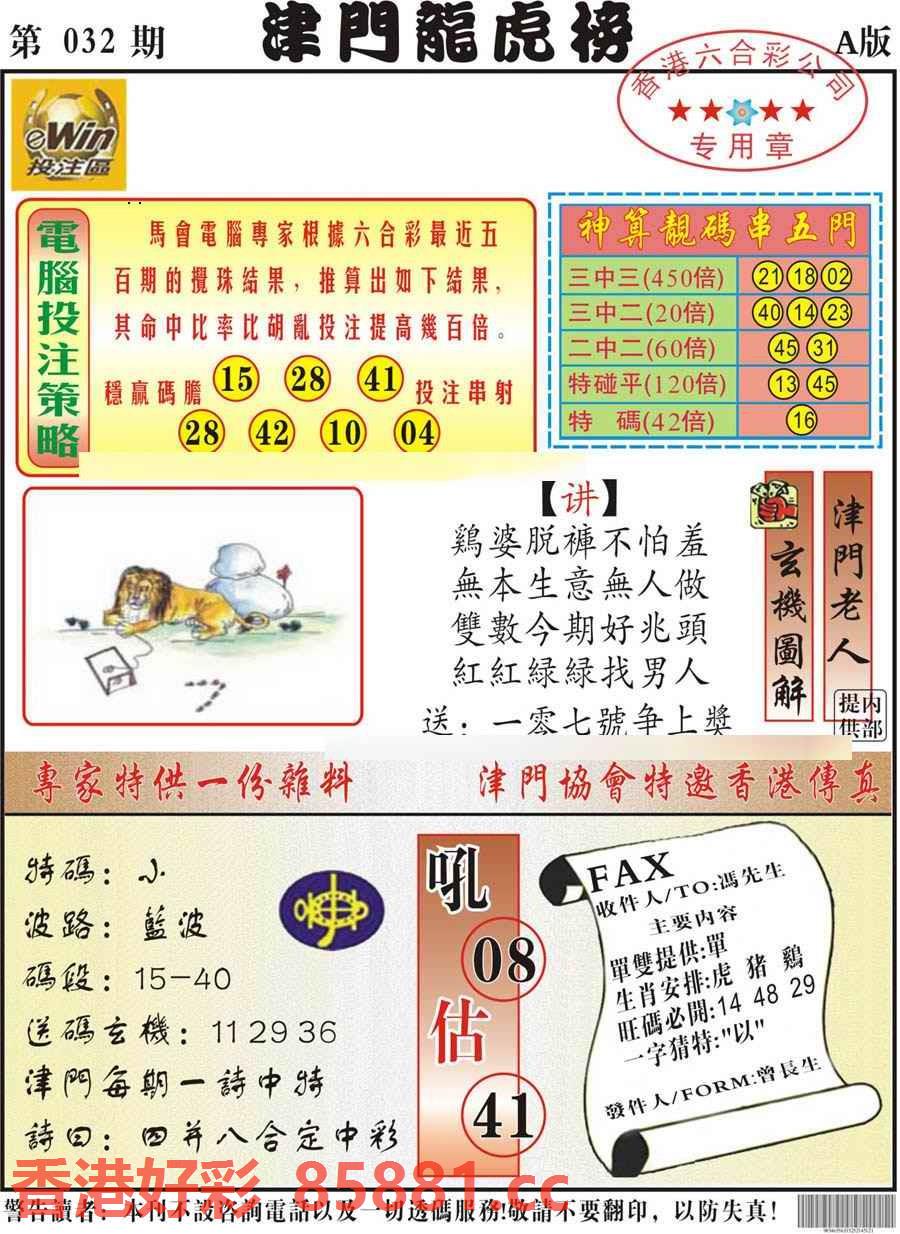 第 032 期
津門龍虎榜
A版
香港六合彩公司
★★★★
专用章
eWin
投注區
電腦投注策略
馬會電腦專家根據六合彩最近五
百期的攪珠結果，推算出如下結果，
其命中比率比胡亂投注提高幾百倍。
穩贏碼膽 15 28 41 投注串射
28 42 10 04
神算靚碼串五門
三中三(450倍) 21 18 02
三中二(20倍) 40 14 23
二中二(60倍) 45 31
特碰平(120倍) 13 45
特 碼(42倍) 16
【讲】
鷄婆脱褲不怕羞
無本生意無人做
雙數今期好兆頭
紅紅緑緑找男人
送：一零七號争上獎
玄機圖解
津門老人
内部提供
專家特供一份雜料
津門協會特邀香港傳真
特碼：小
波路：藍波
碼段：15-40
送碼玄機：11 29 36
津門每期一詩中特
詩曰：四并八合定中彩
吼
08
估
41
FAX
收件人/TO:馮先生
主要内容
單雙提供:單
生肖安排:虎 猪 鷄
旺碼必開:14 48 29
一字猜特:"以"
發件人/FORM:曾長生
香港好彩 85881.cc
警告讀者：本刊不設咨詢電話以及一切透碼服務!敬請不要翻印，以防失真!